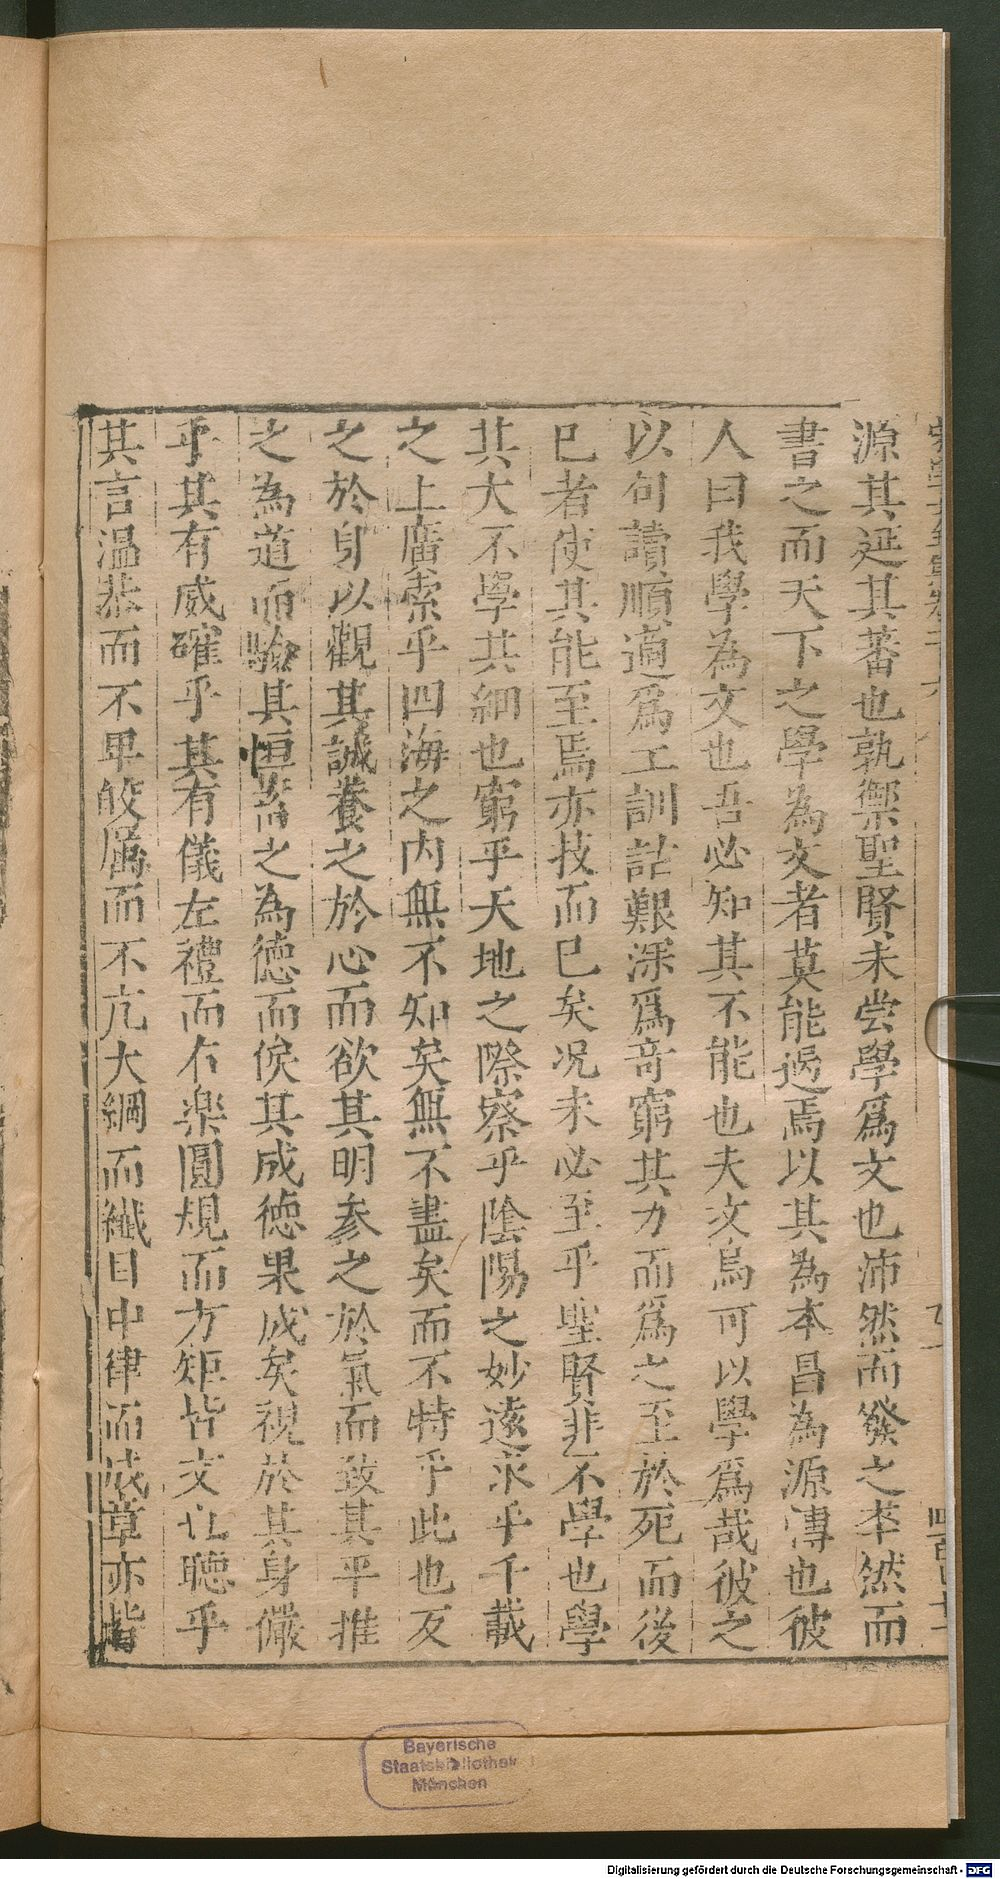 源其延其蕃也孰禦聖賢未尝學爲文也沛然而發之卒然而
書之而天下之學為文者莫能過焉以其為本昌為源慱也彼
人曰我學為文也吾必知其不能也夫文烏可以學爲哉彼之
以句讀順適爲工訓詁艱深爲竒窮其力而爲之至於死而後
已者使其能至焉亦技而已矣况未必至乎聖賢非不學也學
其大不學其細也窮乎天地之際察乎陰陽之妙遠求乎千載
之上廣索乎四海之内無不知矣無不盡矣而不特乎此也反
之於身以觀其誠養之於心而欲其明参之於氣而致其平推
之為道而驗其恒蓄之為德而俟其成德果成矣視於其身儼
乎其有威確乎其有儀左禮而右楽圓規而方矩皆文也聴乎
其言温恭而不卑皎厲而不亢大綱而纎目中律而成章亦皆
Bayerische
Staatsbibliothek
München
Digitalisierung gefördert durch die Deutsche Forschungsgemeinschaft - DFG